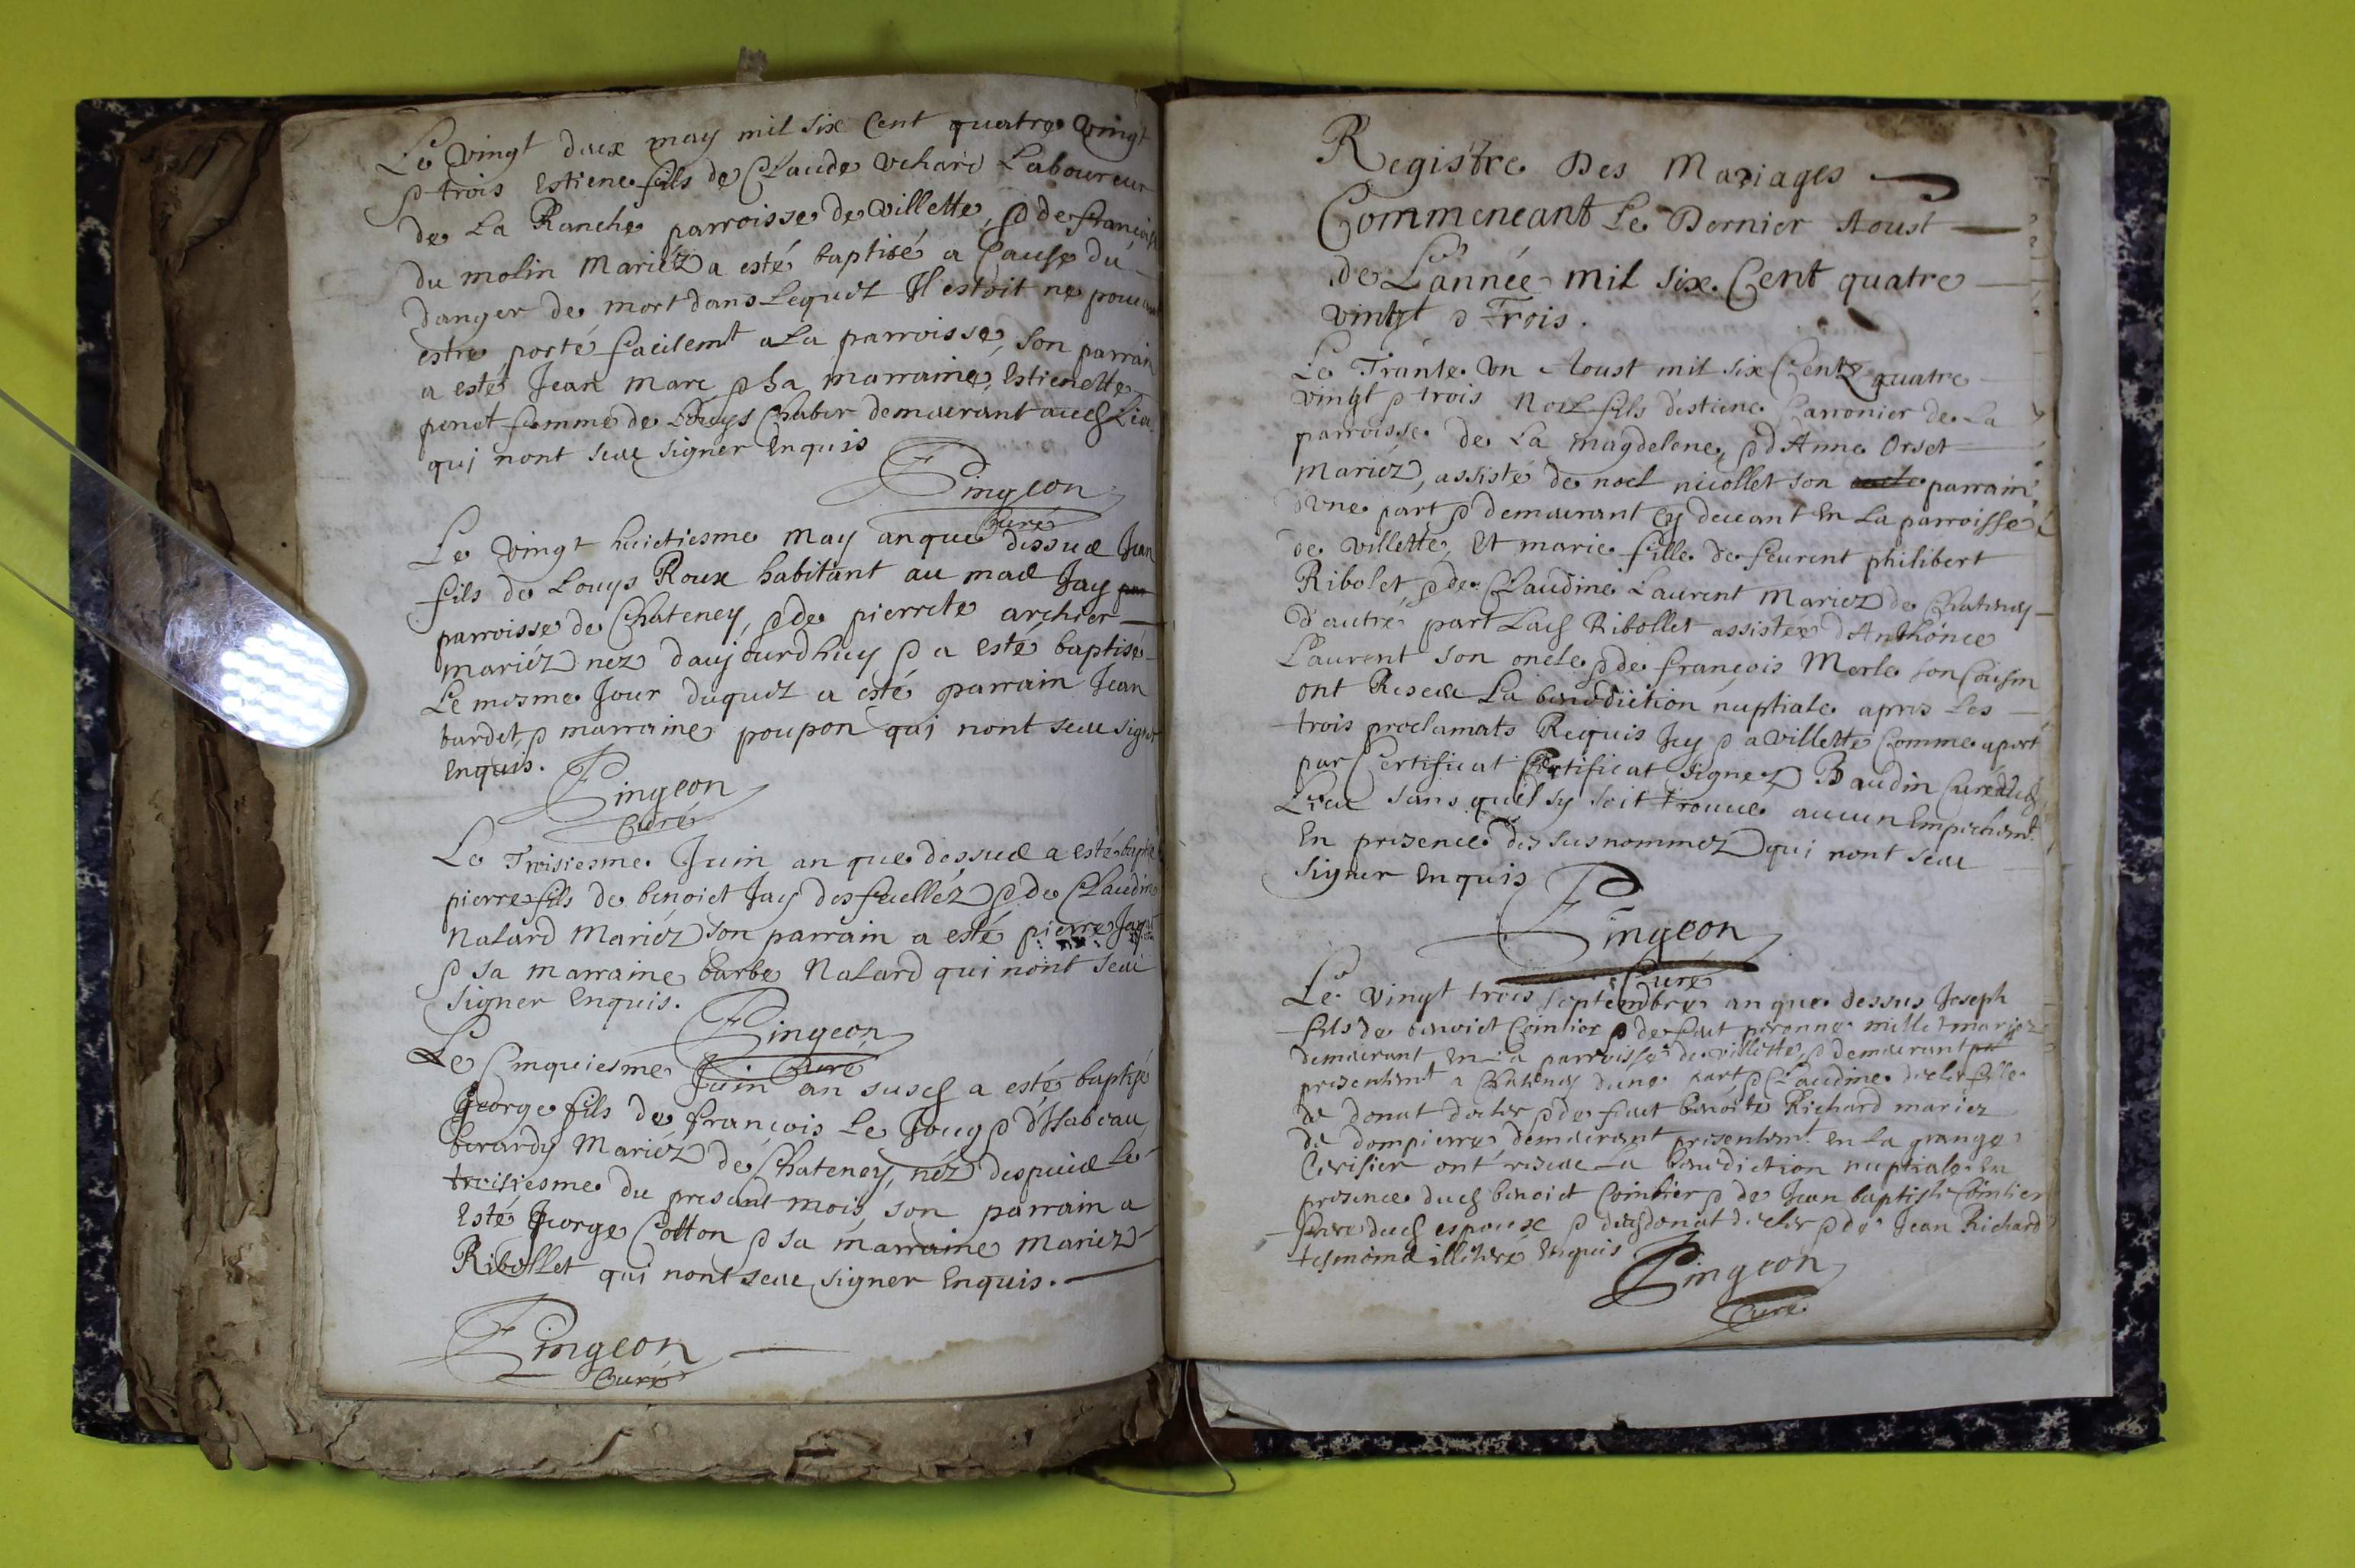 Le vingt deux may mil six Cent quatre vingt
& trois Estiene fils de Claude Uchard Laboureur
de La Ranche parroisse de villette, & de francoise
du molin Mariéz a esté baptisé a Cause du
danger de mort dans Lequel Il estoit ne pouuant
estre porté facilemt a La parroisse, son parrain
a esté Jean Marc & Sa marraine, Estienette
penet femme de Louys Chaber demeurant audt Lieu
qui nont sceu signer Enquis
Pingeon
Curé
Le vingt huictiesme may an que dessux Jean
fils de Louys Roux habitant au mas Jay
parroisse de Chateney, & de pierrete archier
mariéz nez daujourdhuy & a esté baptisé
Le mesme Jour duquel a esté parrain Jean
burdet & marraine poupon qui nont sceu signer
Enquis.
Pingeon
Curé
Le Troisiesme Juin an que dessux a esté baptisé
pierre fils de benoict Jay des fuelléz & de Claudine
Nalard Mariéz son parrain a esté pierre
& sa marraine barbe Nalard qui nont sceu
signer Enquis.
Pingeon
Curé
Le Cinquiesme Juin an susd a esté baptisé
George fils de françois Le Joug & d'Isabeau
berardy Mariéz de Chateney, néz despuix Le
troisiesme du present mois, son parrain a
Esté George Cotton & sa marraine Mariez
Ribollet qui nont sceu signer Enquis.
Pingeon
Curé
Registre Des Mariages
Commencant Le Dernier Aoust
de L'année mil six Cent quatre
vintgt & Trois.
Le Trante un Aoust mil six Centz quatre
vingt & trois Noel fils destiene Carronier de La
parroisse de La magdelene, & d'Anne Orset
Mariéz, assisté de noel nicollet son parrain
d'une part & demeurant Cy deuant En La parroisse
de villette, Et marie fille de feurent philibert
Ribolet, & de Claudine Laurent Mariez de Chateney
d'autre part Lad Ribollet assistée d'Anthoine
Laurent son oncle & de françois Merle son Cousin
ont Receu La benediction nuptiale apres Les
trois proclamats Requis Icy & a villette Comme apert
par Certificat Certificat signez Baudin Curé dud
Lieu sans quil sy soit trouue aucun Empechemt
En presence des susnommez qui nont sceu
signer Enquis
Pingeon
Curé
Le vingt trois septembre an que dessus Joseph
fils de benoict Cointier & de feut peronne millet mariez
demeurant En La parroisse de villette, & demeurant
presentemt a Chateney dune part & Claudine decler fille
de donat decler & de feut benoite Richard mariez
de dompierre, demeurant presentemt En la grange
Cerisier ont receu La benediction nuptiale En
presence dud benoict Cointier & de Jean baptiste Cointier
frere dud espoux & dud donat decler & de Jean Richard
tesmoins illiteré Enquis
Pingeon
Curé